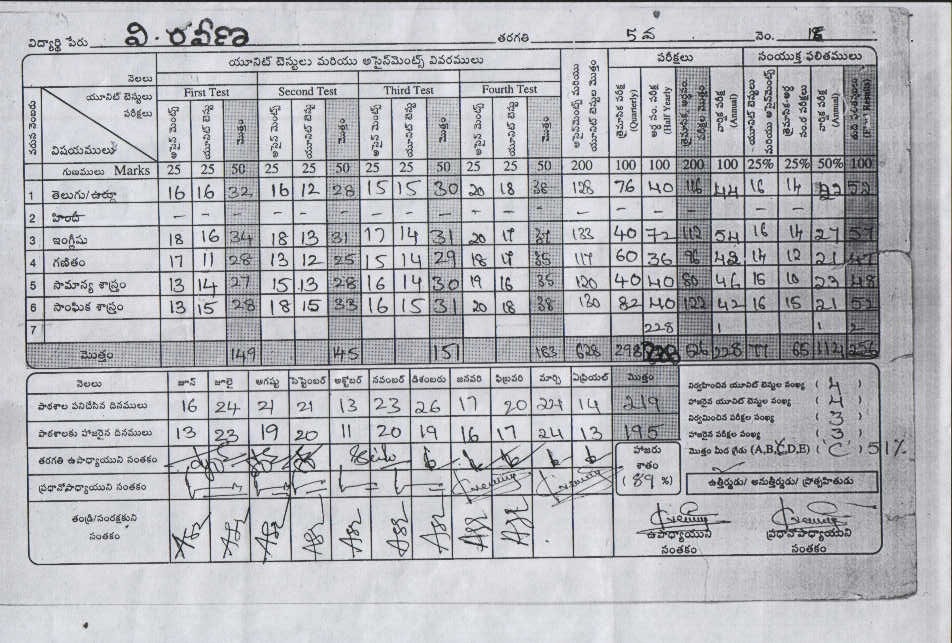 విద్యార్థి పేరు వి. రవీణ తరగతి 5 వ నెం. 18
యూనిట్ టెస్టులు మరియు అసైన్‌మెంట్స్ వివరములు పరీక్షలు సంయుక్త ఫలితములు
నెలలు First Test Second Test Third Test Fourth Test
యూనిట్ టెస్టులు పరీక్షలు అసైన్ మెంట్స్ యూనిట్ టెస్టు మొత్తం అసైన్ మెంట్స్ యూనిట్ టెస్టు మొత్తం అసైన్ మెంట్స్ యూనిట్ టెస్టు మొత్తం అసైన్ మెంట్స్ యూనిట్ టెస్టు మొత్తం అసైన్‌మెంట్స్ మరియు యూనిట్ టెస్టుల మొత్తం త్రైమాసిక పరీక్ష (Quarterly) అర్థ సం. పరీక్ష (Half Yearly) వార్షిక పరీక్ష (Annual) వార్షిక పరీక్ష (Annual)
విషయములు
గుణములు Marks 25 25 50 25 25 50 25 25 50 25 25 50 200 100 100 200 100 25% 25% 50% 100
1 తెలుగు/ఉర్దూ 16 16 32 16 12 28 15 15 30 20 18 38 128 76 40 116 44 16 14 22 52
2 హిందీ - - - - - - - - - - - - - - - - - - - - -
3 ఇంగ్లీషు 18 16 34 18 13 31 17 14 31 20 17 37 133 40 72 112 54 16 14 27 57
4 గణితం 17 11 28 13 12 25 15 14 29 18 17 35 117 60 36 96 42 14 12 21 47
5 సామాన్య శాస్త్రం 13 14 27 15 13 28 16 14 30 19 16 35 120 40 40 80 46 15 10 23 48
6 సాంఘిక శాస్త్రం 13 15 28 18 15 33 16 15 31 20 18 38 130 82 40 122 42 16 15 21 52
7 228 1 1 2
మొత్తం 149 145 151 183 628 298 228 526 228 77 65 114 256
నెలలు జూన్ జూలై ఆగష్టు సెప్టెంబర్ అక్టోబర్ నవంబర్ డిశంబరు జనవరి ఫిబ్రవరి మార్చి ఏప్రియల్ మొత్తం
నిర్వహించిన యూనిట్ టెస్టుల సంఖ్య ( 4 )
పాఠశాల పనిచేసిన దినములు 16 24 21 21 13 23 26 17 20 24 14 219
హాజరైన యూనిట్ టెస్టుల సంఖ్య ( 4 )
నిర్వహించిన పరీక్షల సంఖ్య ( 3 )
పాఠశాలకు హాజరైన దినములు 13 23 19 20 11 20 19 16 17 24 13 195
హాజరైన పరీక్షల సంఖ్య ( 3 )
తరగతి ఉపాధ్యాయుని సంతకం
హాజరు శాతం (89 %)
మొత్తం మీద గ్రేడు (A,B,C,D,E) ( C ) 51%
ప్రధానోపాధ్యాయుని సంతకం
ఉత్తీర్ణుడు/ అనుత్తీర్ణుడు/ ప్రోత్సహితుడు
తండ్రి/సంరక్షకుని సంతకం
ఉపాధ్యాయుని సంతకం
ప్రధానోపాధ్యాయుని సంతకం